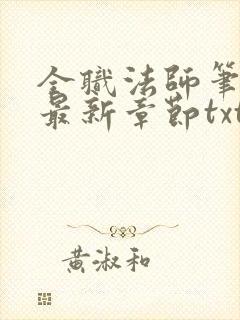 全職法師筆
最新章節txt
黃淑和